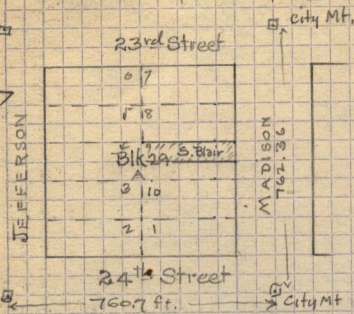 city Mt.
23rd Street
6 7
5 8
9
Blk 29 S. Blair
3 10
2 1
JEFFERSON
MADISON
762.36
24th Street
760.7 ft.
City Mt